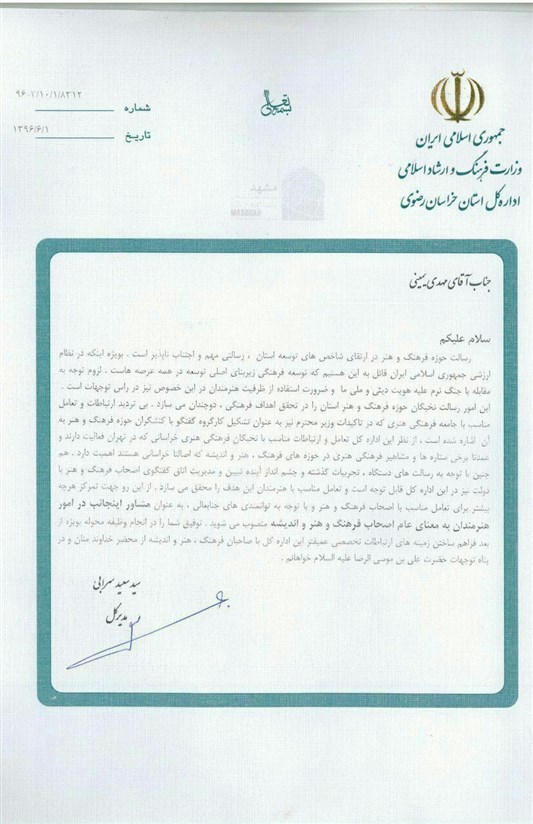 بسمه تعالی
جمهوری اسلامی ایران
وزارت فرهنگ و ارشاد اسلامی
اداره کل استان خراسان رضوی
شماره ۹۶۰۷/۱۰/۱/۸۳۱۲
تاریخ ۱۳۹۶/۶/۱
مشهد
MASHHAD
جناب آقای مهدی یمینی
سلام علیکم
رسالت حوزه فرهنگ و هنر در ارتقای شاخص های توسعه استان ، رسالتی مهم و اجتناب ناپذیر است . بویژه اینکه در نظام
ارزشی جمهوری اسلامی ایران قائل به این هستیم که توسعه فرهنگی زیربنای اصلی توسعه در همه عرصه هاست . لزوم توجه به
مقابله با جنگ نرم علیه هویت دینی و ملی ما و ضرورت استفاده از ظرفیت هنرمندان در این خصوص نیز در راس توجهات است .
این امور رسالت نخبگان حوزه فرهنگ و هنر استان را در تحقق اهداف فرهنگی ، دوچندان می سازد . بی تردید ارتباطات و تعامل
مناسب با جامعه فرهنگی هنری که در تاکیدات وزیر محترم نیز به عنوان تشکیل کارگروه گفتگو با کنشگران حوزه فرهنگ و هنر به
آن اشاره شده است ، از نظر این اداره کل تعامل و ارتباطات مناسب با نخبگان فرهنگی هنری خراسانی که در تهران فعالیت دارند و
عمدتا برخی ستاره ها و مشاهیر فرهنگی هنری در حوزه های فرهنگ ، هنر و اندیشه که اصالتا خراسانی هستند اهمیت دارد . هم
چنین با توجه به رسالت های دستگاه ، تجربیات گذشته و چشم انداز آینده تبیین و مدیریت اتاق گفتگوی اصحاب فرهنگ و هنر با
دولت نیز در این اداره کل قابل توجه است و تعامل مناسب با هنرمندان این هدف را محقق می سازد . از این رو جهت تمرکز هرچه
بیشتر برای تعامل مناسب با اصحاب فرهنگ و هنر و با توجه به توانمندی های جنابعالی ، به عنوان مشاور اینجانب در امور
هنرمندان به معنای عام اصحاب فرهنگ و هنر و اندیشه منصوب می شوید . توفیق شما را در انجام وظیفه محوله بویژه از
بعد فراهم ساختن زمینه های ارتباطات تخصصی عمیقتر این اداره کل با صاحبان فرهنگ ، هنر و اندیشه از محضر خداوند منان و در
پناه توجهات حضرت علی بن موسی الرضا علیه السلام خواهانم .
سید سعید سرابی
مدیرکل